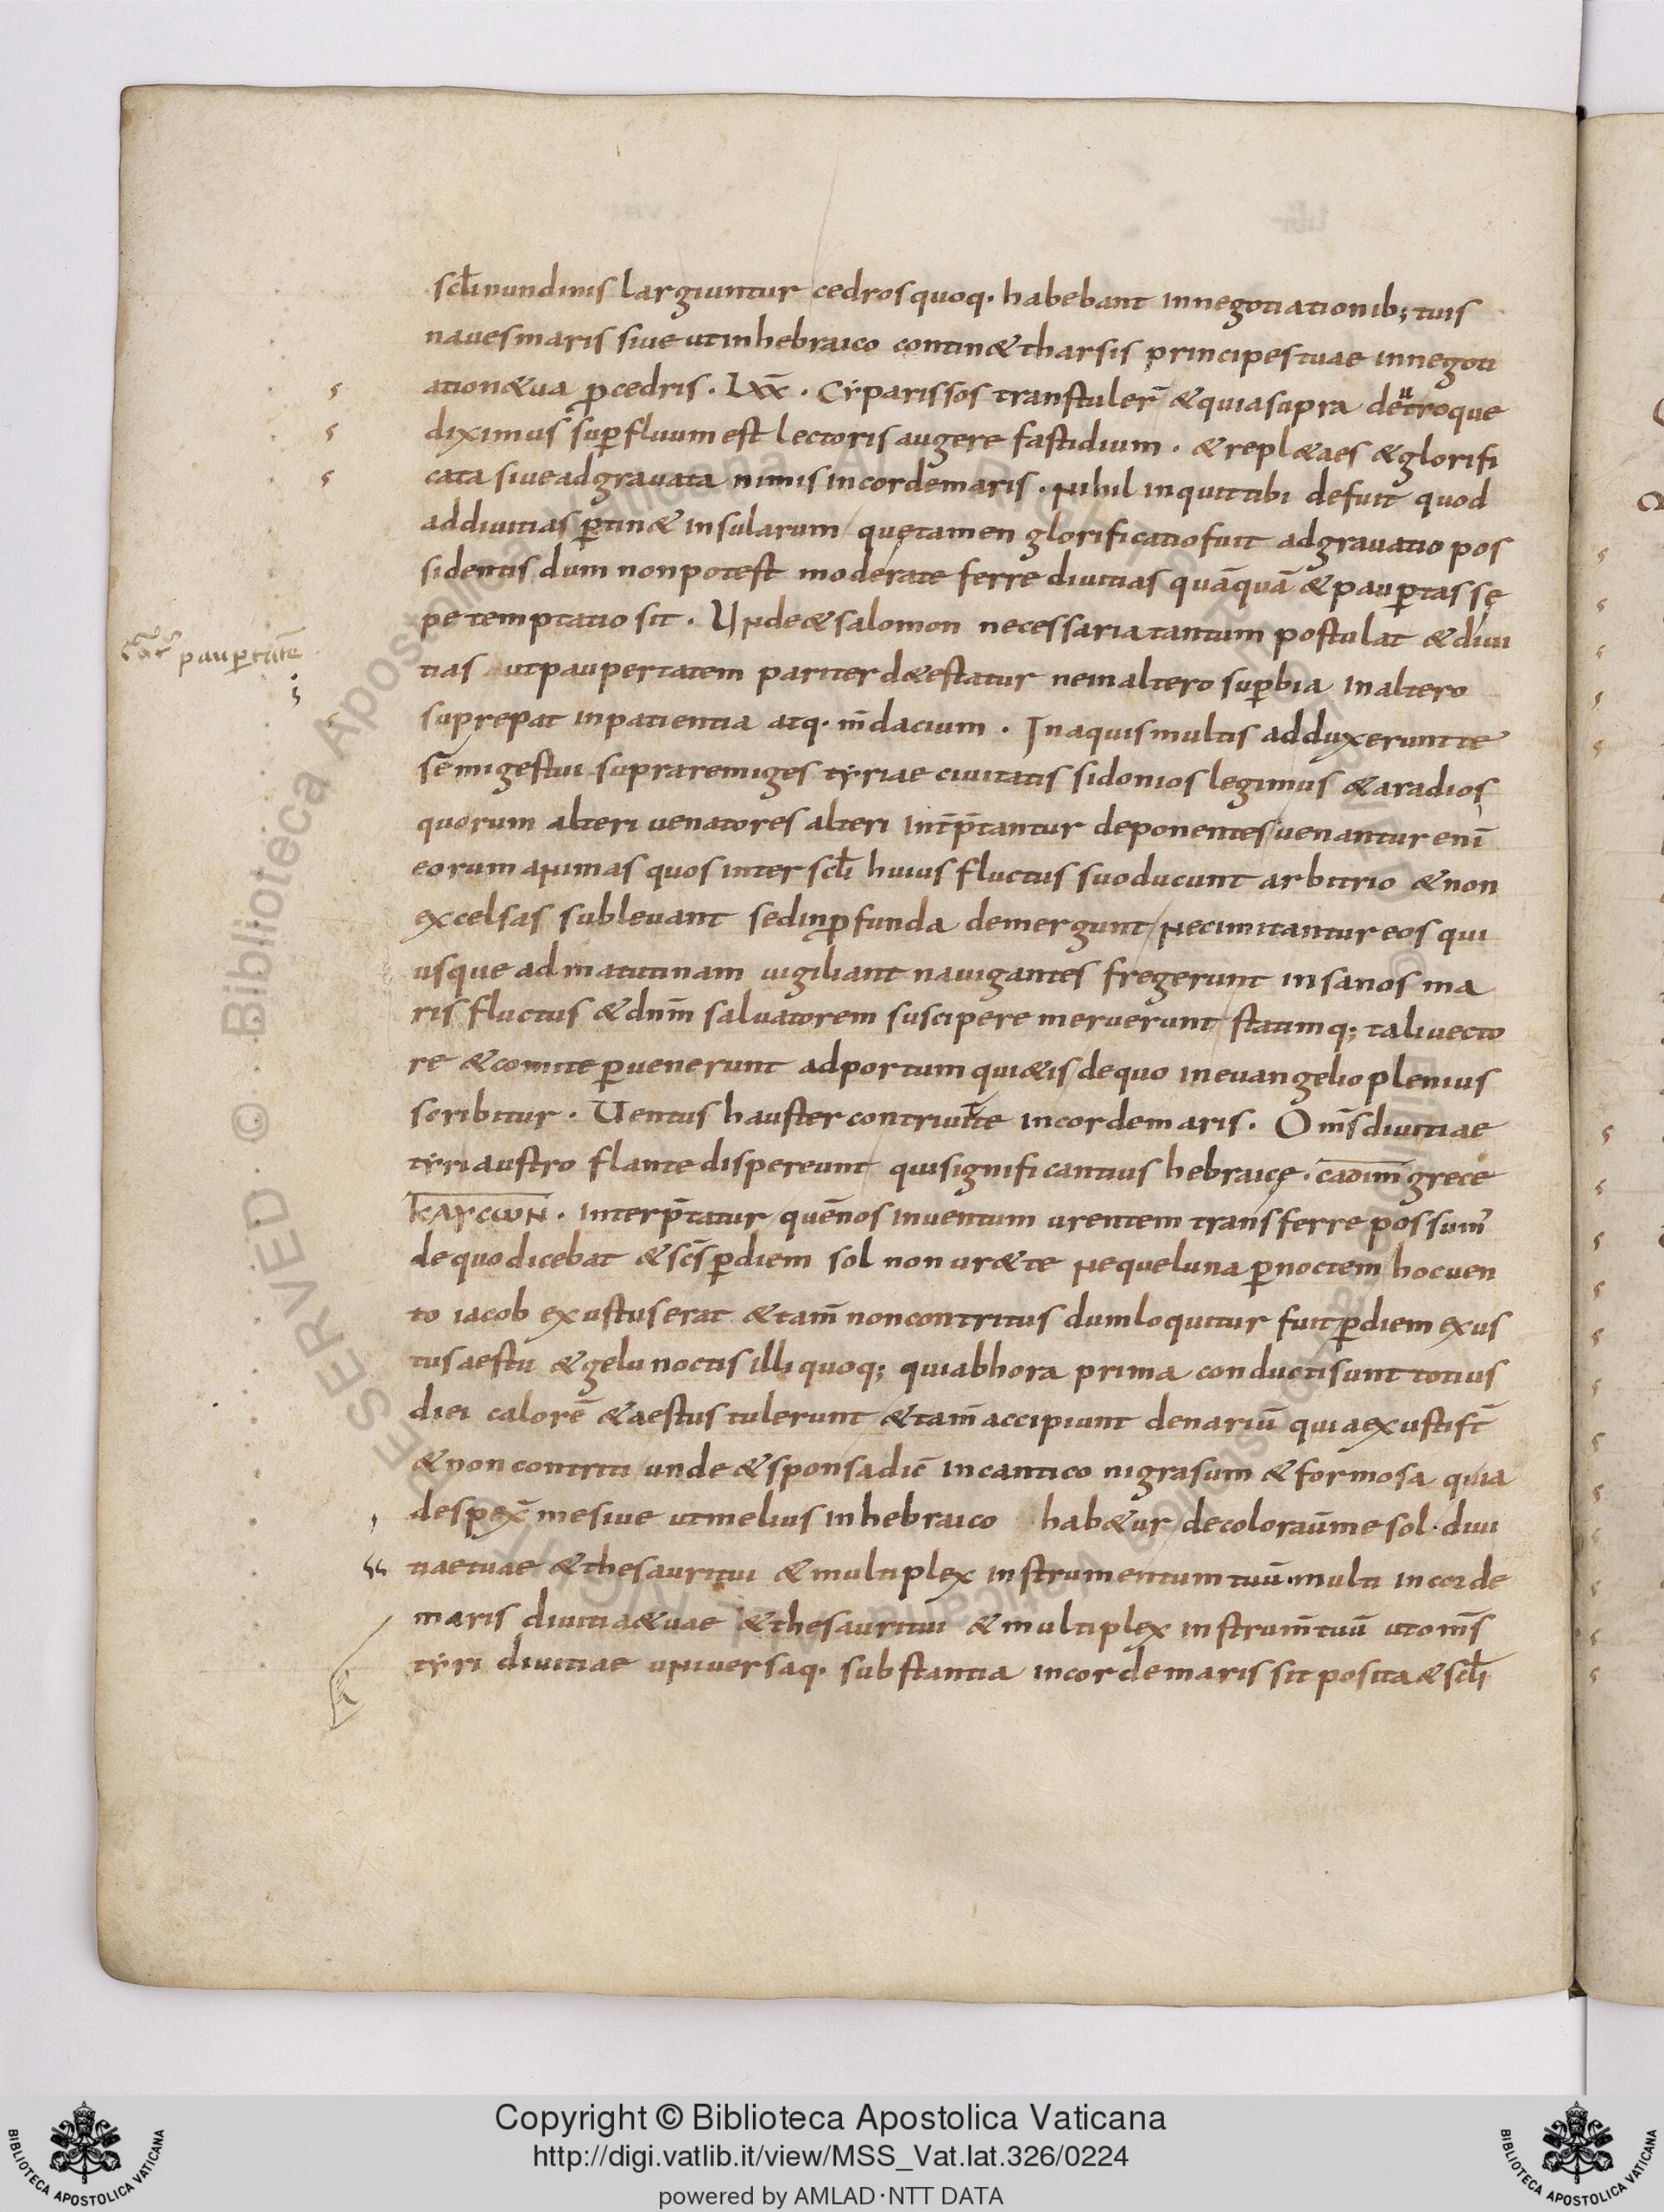 scl̄inundinis largiuntur cedrosquoq· habebant innegotiationib; tuis
nauesmaris siue utinhebraico contin& tharsis principes tuae innegoti
ation&ua p̱cedris · Lxx̄ · Cẏparissos transtuler̄ & quiasupra deutroque
diximus sup̱fluum est lectoris augere fastidium · & repl&aes & glorifi
cata siueadgrauata nimis incordemaris · Nihil inquit tibi defuit quod
addiuitias p̱tin& insularum quętamen glorificatiofuit adgrauatio pos
sidentis dum nonpotest moderate ferre diuitias quāquā & paup̱tas sę
pe temptatio sit · Unde & salomon necessaria tantum postulat & diui
tias utpaupertatem pariter d&estatur neinaltero sup̱bia inaltero
suprepat inpatientia atq· m̄dacium · Inaquismultis adduxerunt te
rēmigestui supraremiges tẏriae ciuitatis sidonios legimus & aradios
quorum alteri uenatores alteri int̄p̄tantur deponentes uenantur enī
eorum animas quos inter scl̄i huius fluctus suoducunt arbitrio & non
excelsas subleuant sedinp̱funda demergunt Necimitantur eos qui
usque admatutinam uigiliant nauigantes fregerunt insanos ma
ris fluctus & dnm̄ saluatorem suscipere meruerunt statimq; taliuecto
re & comite p̱uenerunt adportum qui&is dequo ineuangelio plenius
scribitur · Uentus hauster contriuit te incordemaris · Om̄s diuitiae
tẏri austro flante dispereunt qui significantius hebraicę · cadim̄ grece
ΚΑΥCωΝ · interp̄tatur quēnos inuentum urentem transferre possum'
dequodicebat & sc̄s p̱diem sol non ur& te Nequeluna p̱noctem hocuen
to iacob exustus erat & tam̄ noncontritus dumloquitur fuit p̱diem exus
tusaestu & gelu noctis illi quoq; quiabhora prima conducti sunt totius
diei calorē & aestus tulerunt & tam̄ accipiunt denariū quiaexusti st̄
& noncontriti unde & sponsa dic̄ incantico nigrasum & formosa quia
despex̄ mesiue utmelius inhebraico hab&ur decoloraūme sol · diui
tiaetuae & thesauritui & multiplex instrumentum tuū · multi incorde
maris diuitia&uae & thesauritui & multiplex instrum̄tuū utom̄s
tẏri diuitiae uniuersaq· substantia incordemaris sit posita & scl̄i
paup̱tatē
Copyright © Biblioteca Apostolica Vaticana
http://digi.vatlib.it/view/MSS_Vat.lat.326/0224
powered by AMLAD·NTT DATA
BIBLIOTECA APOSTOLICA VATICANA
BIBLIOTECA APOSTOLICA VATICANA